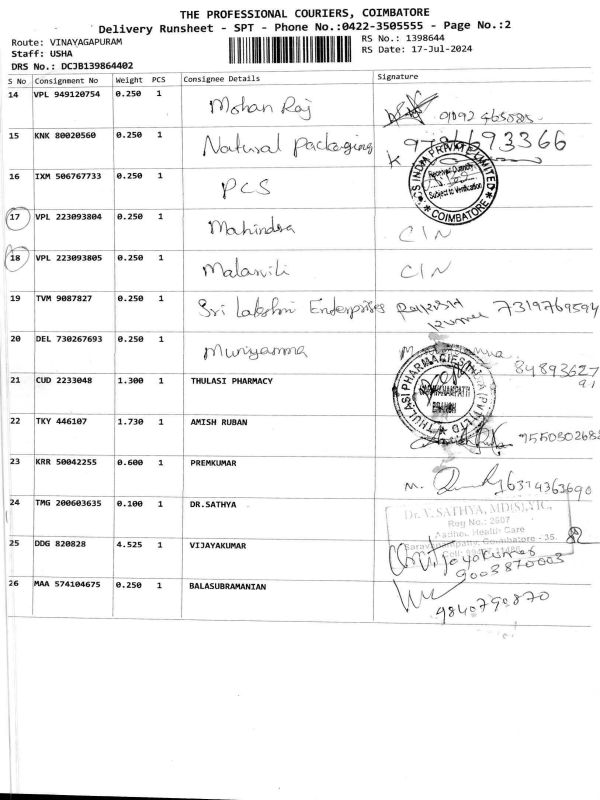 THE PROFESSIONAL COURIERS, COIMBATORE
Delivery Runsheet - SPT - Phone No.:0422-3505555 - Page No.:2
Route: VINAYAGAPURAM RS No.: 1398644
Staff: USHA RS Date: 17-Jul-2024
DRS No.: DCJB139864402
S No Consignment No Weight PCS Consignee Details Signature
14 VPL 949120754 0.250 1 Mohan Raj
15 KNK 80020560 0.250 1 Natural Packaging
16 IXM 506767733 0.250 1 PCS
INDIA PRIVATE LIMITED
Subject to Verification
COIMBATORE
17 VPL 223093804 0.250 1 Mahindra C/N
18 VPL 223093805 0.250 1 C/N
19 TVM 9087827 0.250 1 Sri Lakshmi Enterprises 7319769594
20 DEL 730267693 0.250 1 Muniyamma
21 CUD 2233048 1.300 1 THULASI PHARMACY
THULASI PHARMACIES INDIA (PVT) LTD
BRANCH
22 TKY 446107 1.730 1 AMISH RUBAN
23 KRR 50042255 0.600 1 PREMKUMAR M.
24 TMG 200603635 0.100 1 DR.SATHYA
Dr. V. SATHYA,
Reg No.: 2607
Health Care
Coimbatore - 35.
25 DDG 820828 4.525 1 VIJAYAKUMAR Vijayakumar
9003870003
26 MAA 574104675 0.250 1 BALASUBRAMANIAN
9840790870